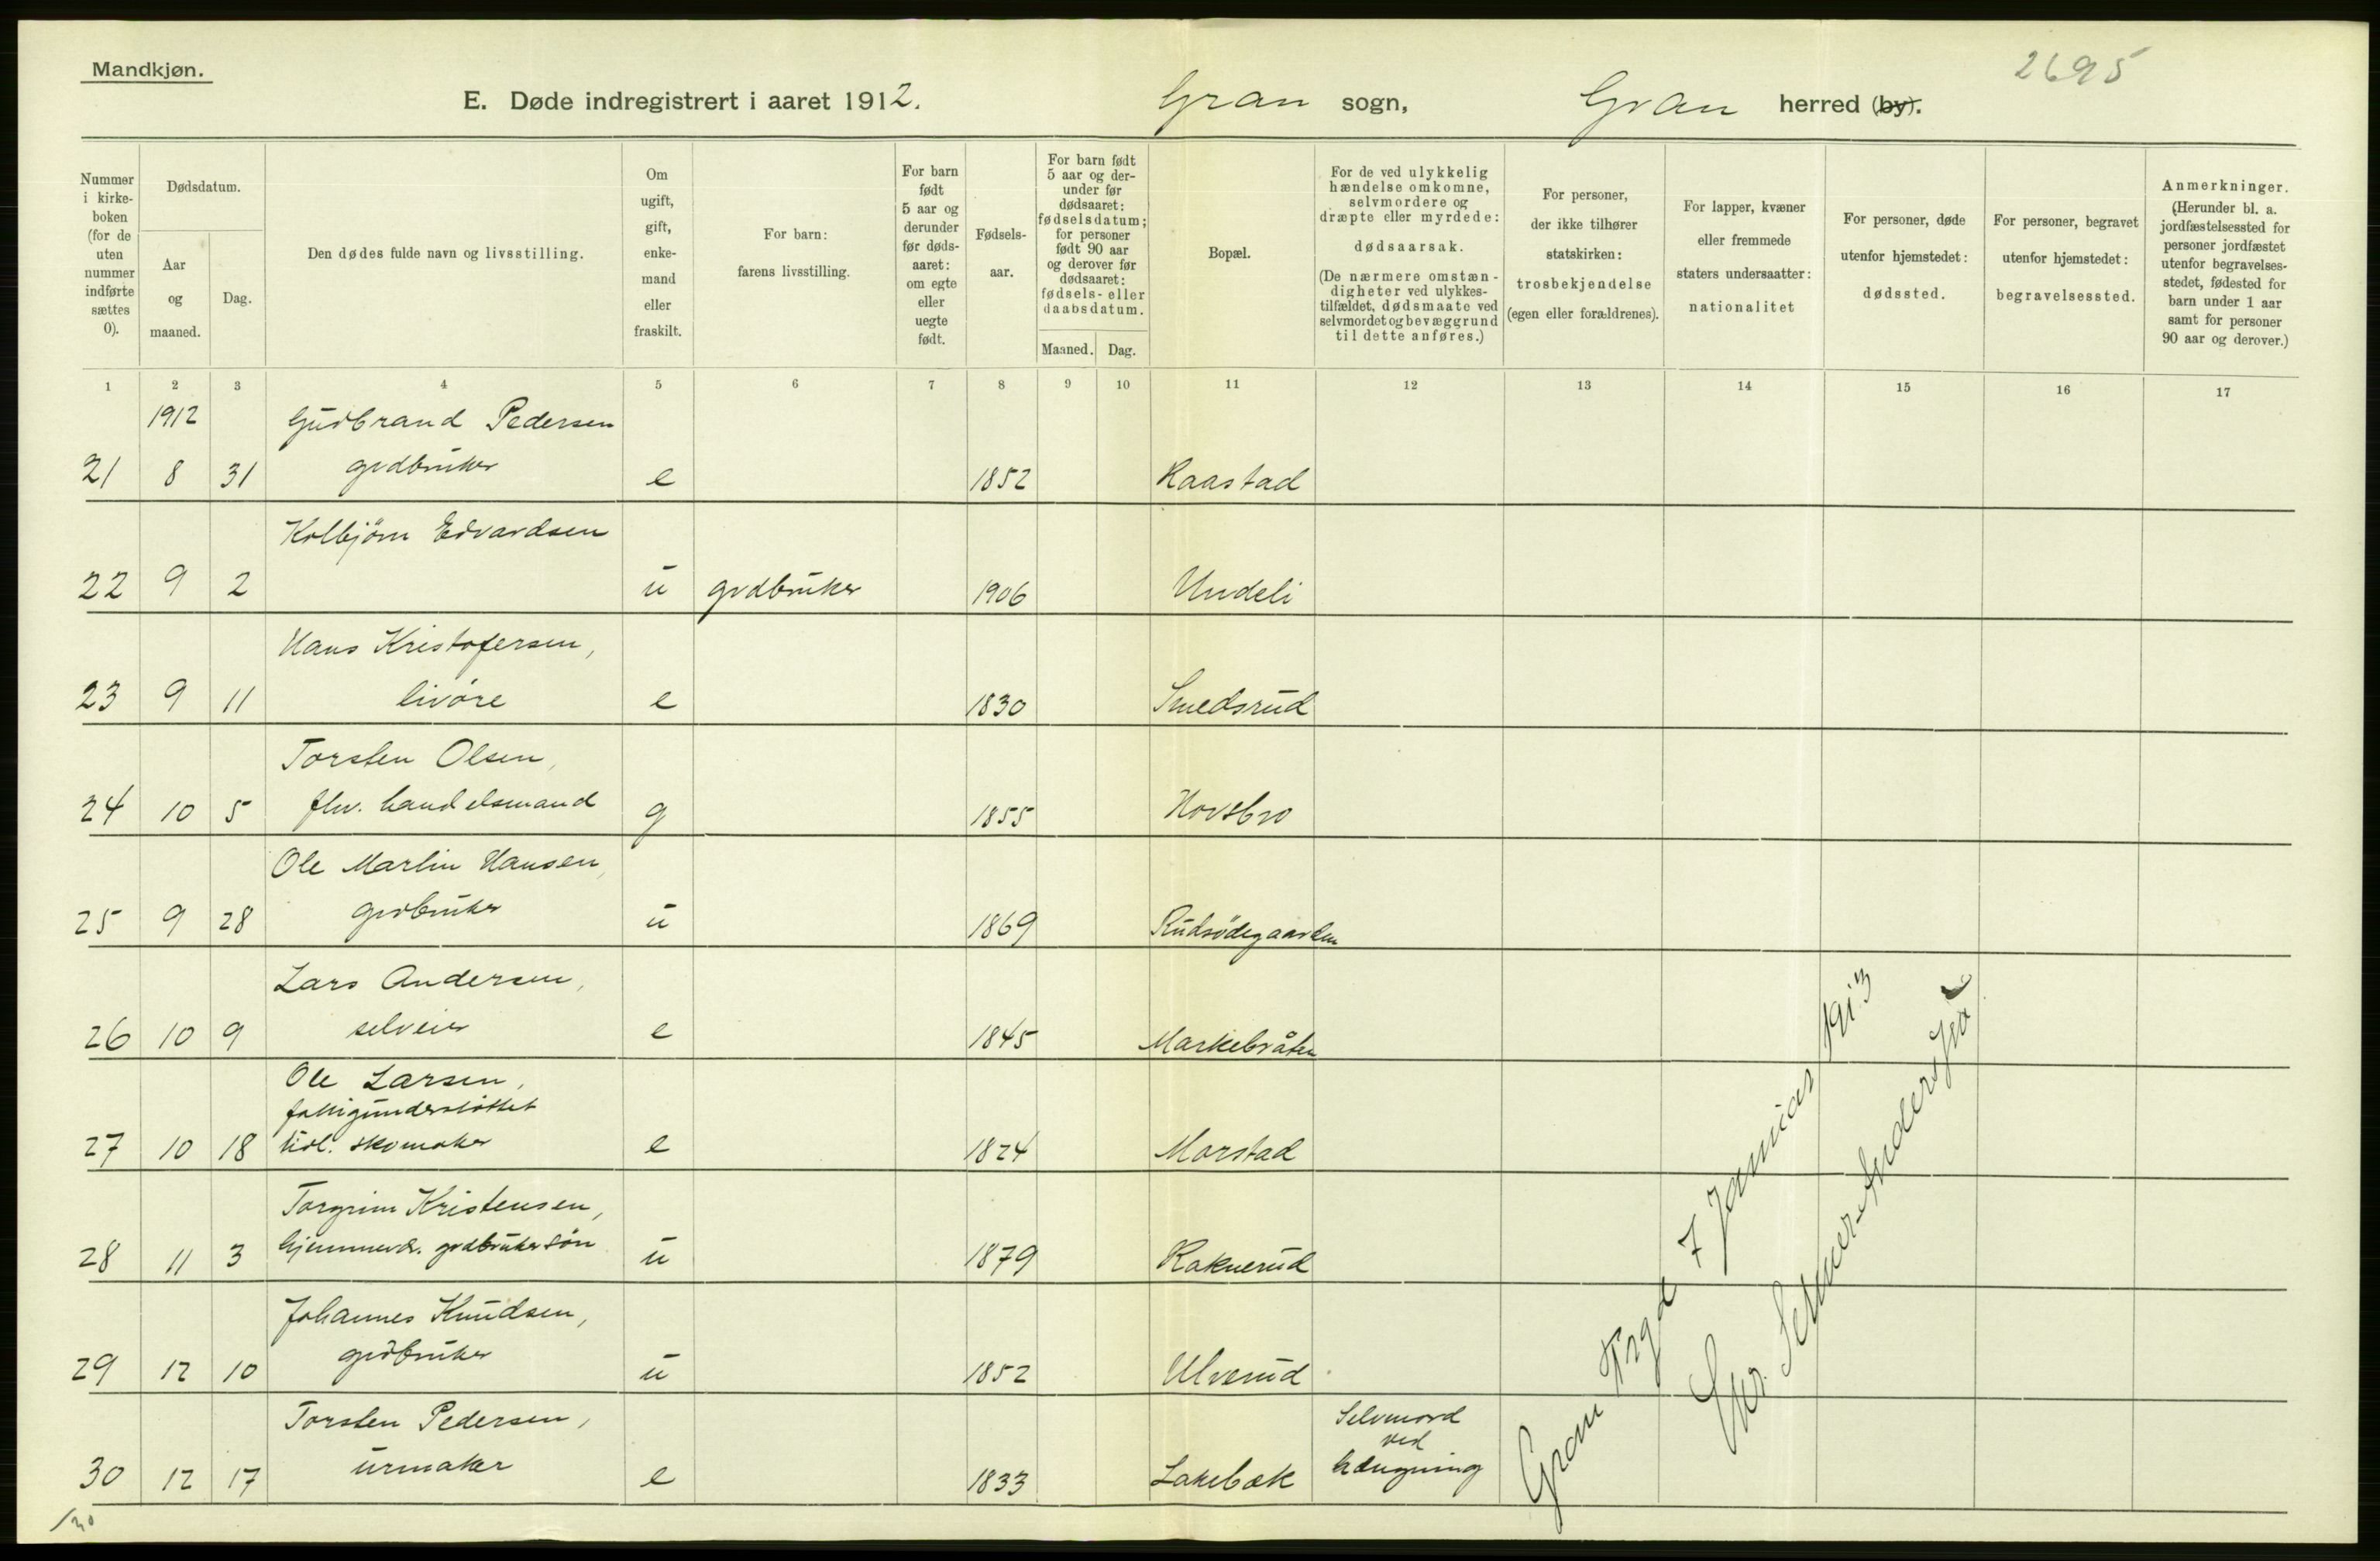 Mandkjøn.
2695
E. Døde indregistrert i aaret 1912. Gran sogn, Gran herred (by).
Nummer i kirkeboken (for de uten nummer indførte sættes 0).
Dødsdatum.
Aar og maaned.
Dag.
Den dødes fulde navn og livsstilling.
Om ugift, gift, enkemand eller fraskilt.
For barn: farens livsstilling.
For barn født 5 aar og derunder før dødsaaret: om egte eller uegte født.
Fødselsaar.
For barn født 5 aar og derunder før dødsaaret: fødselsdatum; for personer født 90 aar og derover før dødsaaret: fødsels- eller daabsdatum.
Maaned. Dag.
Bopæl.
For de ved ulykkelig hændelse omkomne, selvmordere og dræpte eller myrdede: dødsaarsak. (De nærmere omstændigheter ved ulykkestilfældet, dødsmaate ved selvmordet og bevæggrund til dette anføres.)
For personer, der ikke tilhører statskirken: trosbekjendelse (egen eller forældrenes).
For lapper, kvæner eller fremmede staters undersaatter: nationalitet
For personer, døde utenfor hjemstedet: dødssted.
For personer, begravet utenfor hjemstedet: begravelsessted.
Anmerkninger. (Herunder bl. a. jordfæstelsessted for personer jordfæstet utenfor begravelsesstedet, fødested for barn under 1 aar samt for personer 90 aar og derover.)
1 2 3 4 5 6 7 8 9 10 11 12 13 14 15 16 17
1912 Gudbrand Pedersen
21 8 31 grdbruker e 1852 Raastad
Kolbjörn Edvardsen
22 9 2 u grdbruker 1906 Undeli
Hans Kristofersen,
23 9 11 livöre e 1830 Smedsrud
Torsten Olsen,
24 10 5 fhv. handelsmand g 1855 Hovsbro
Ole Martin Hansen,
25 9 28 grdbruker u 1869 Rudsödegaarden
Lars Andersen,
26 10 9 selveier e 1845 Markebråten
Ole Larsen,
fattigunderstöttet
27 10 18 tidl. skomaker e 1824 Morstad
Torgrim Kristensen,
28 11 3 hjemmevær. grdbrukersön u 1879 Raknerud
Johannes Knudsen,
29 12 10 grdbruker u 1852 Ulverud
Torsten Pedersen, Selvmord
ved
30 12 17 urmaker e 1833 Lakebæk hængning
Gran Prgd 7 Januar 1913
/30